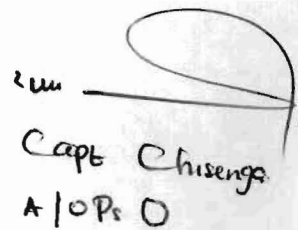 Capt Chisenga
A/OPs O